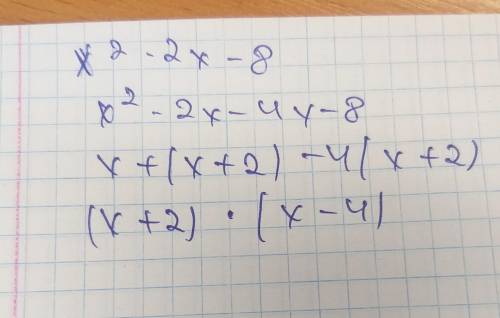 x² - 2x - 8
x² - 2x - 4x - 8
x + (x + 2) - 4( x + 2)
(x + 2) · (x - 4)